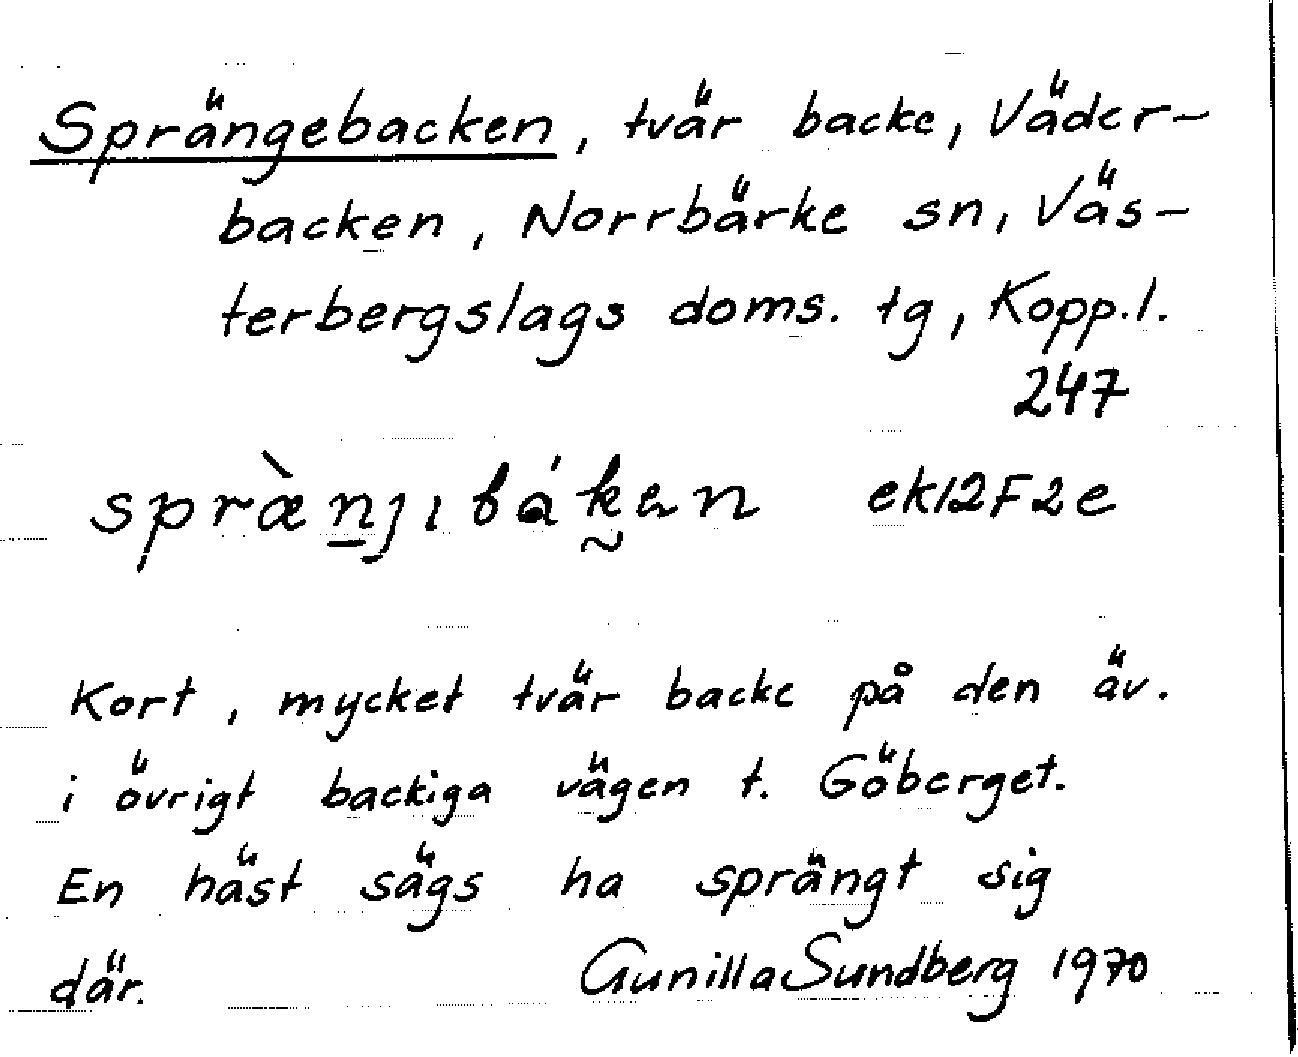 Sprängebacken, tvär backe, Väder-
backen, Norrbärke sn, Väs-
terbergslags doms. tg, Kopp.l.
247
spræ̀nȷıbákən ek12F2e
Kort, mycket tvär backe på den äv.
i övrigt backiga vägen t. Göberget.
En häst sägs ha sprängt sig
där. Gunilla Sundberg 1970